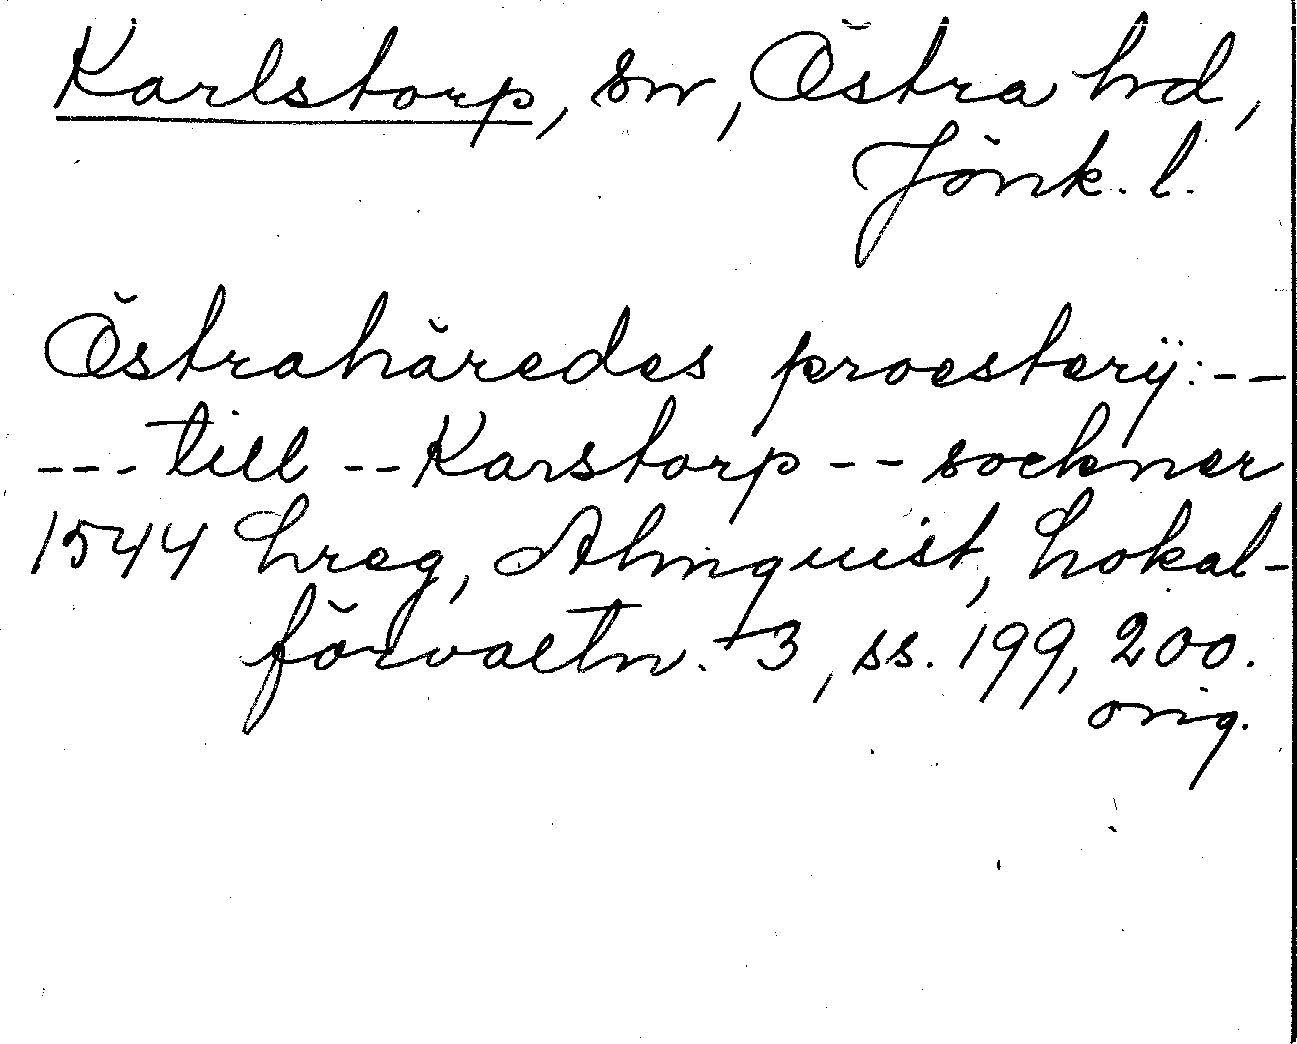 Karlstorp, sn, Östra hd,
Jönk. l.
Östrahäredes proesterÿ: --
--- till -- Karstorp -- sockner
1544 Lreg, Almquist, Lokal-
förvaltn. 3, ss. 199, 200.
orig.